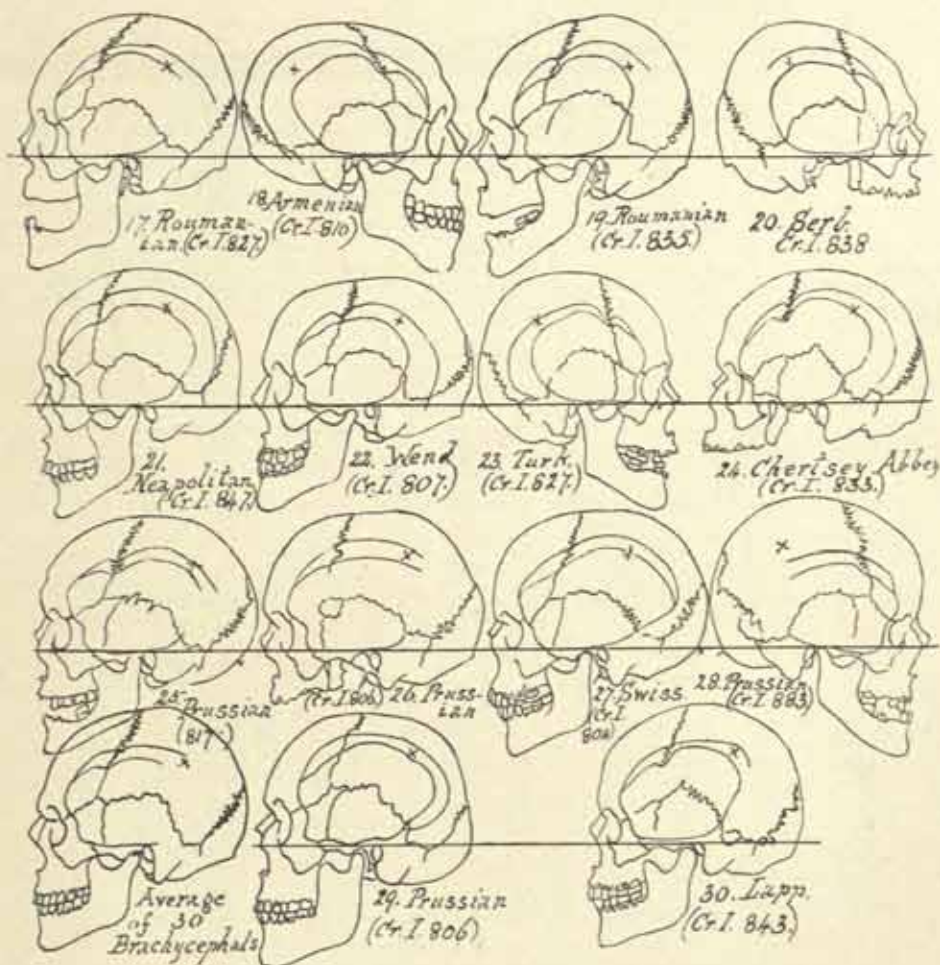 17. Rouman-
ian. (Cr.I. 827.)
18. Armenian
(Cr.I. 810)
19. Roumanian
(Cr.I. 835.)
20. Serb.
Cr.I. 838
21.
Neapolitan
(Cr.I. 847.)
22. Wend
(Cr.I. 807.)
23. Turk.
(Cr.I. 827.)
24. Chertsey Abbey
(Cr.I. 833.)
25.
Prussian
(817.)
(Cr.I. 806) 26. Pruss-
ian
27. Swiss
(Cr.I
804)
28. Prussian
(Cr.I. 883)
Average
of 30
Brachycephals
29. Prussian
(Cr.I. 806)
30. Lapp.
(Cr.I. 843.)